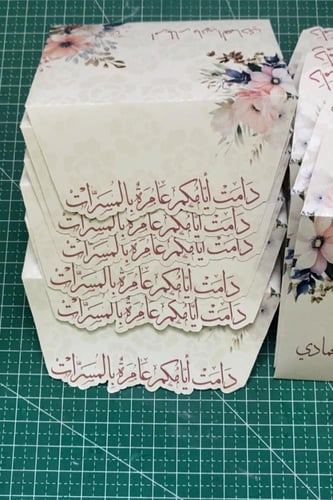 دَامَتْ أَيَّامُكُم عَامِرَةً بِالمَسَرَّاتْ
دَامَتْ أَيَّامُكُم عَامِرَةً بِالمَسَرَّاتْ
دَامَتْ أَيَّامُكُم عَامِرَةً بِالمَسَرَّاتْ
دَامَتْ أَيَّامُكُم عَامِرَةً بِالمَسَرَّاتْ
دَامَتْ أَيَّامُكُم عَامِرَةً بِالمَسَرَّاتْ
دَامَتْ أَيَّامُكُم عَامِرَةً بِالمَسَرَّاتْ